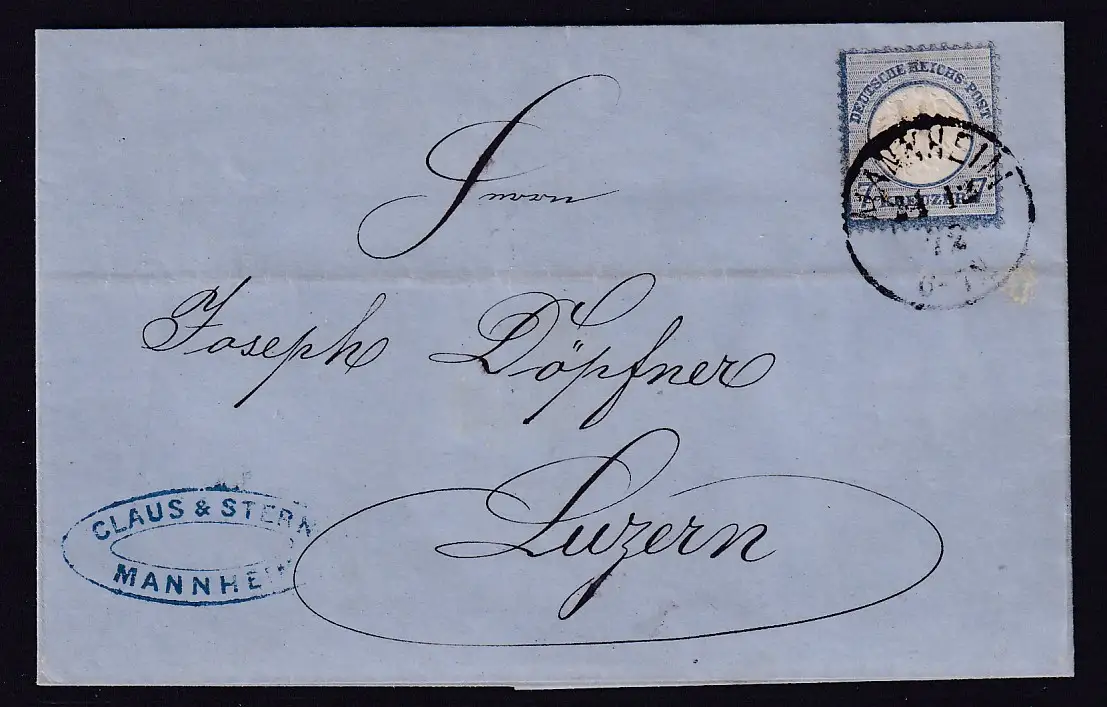 DEUTSCHE REICHS-POST
7 KREUZER 7
MANNHEIM
72
6-7N
Herrn
Joseph Döpfner
Luzern
CLAUS & STERN
MANNHEIM